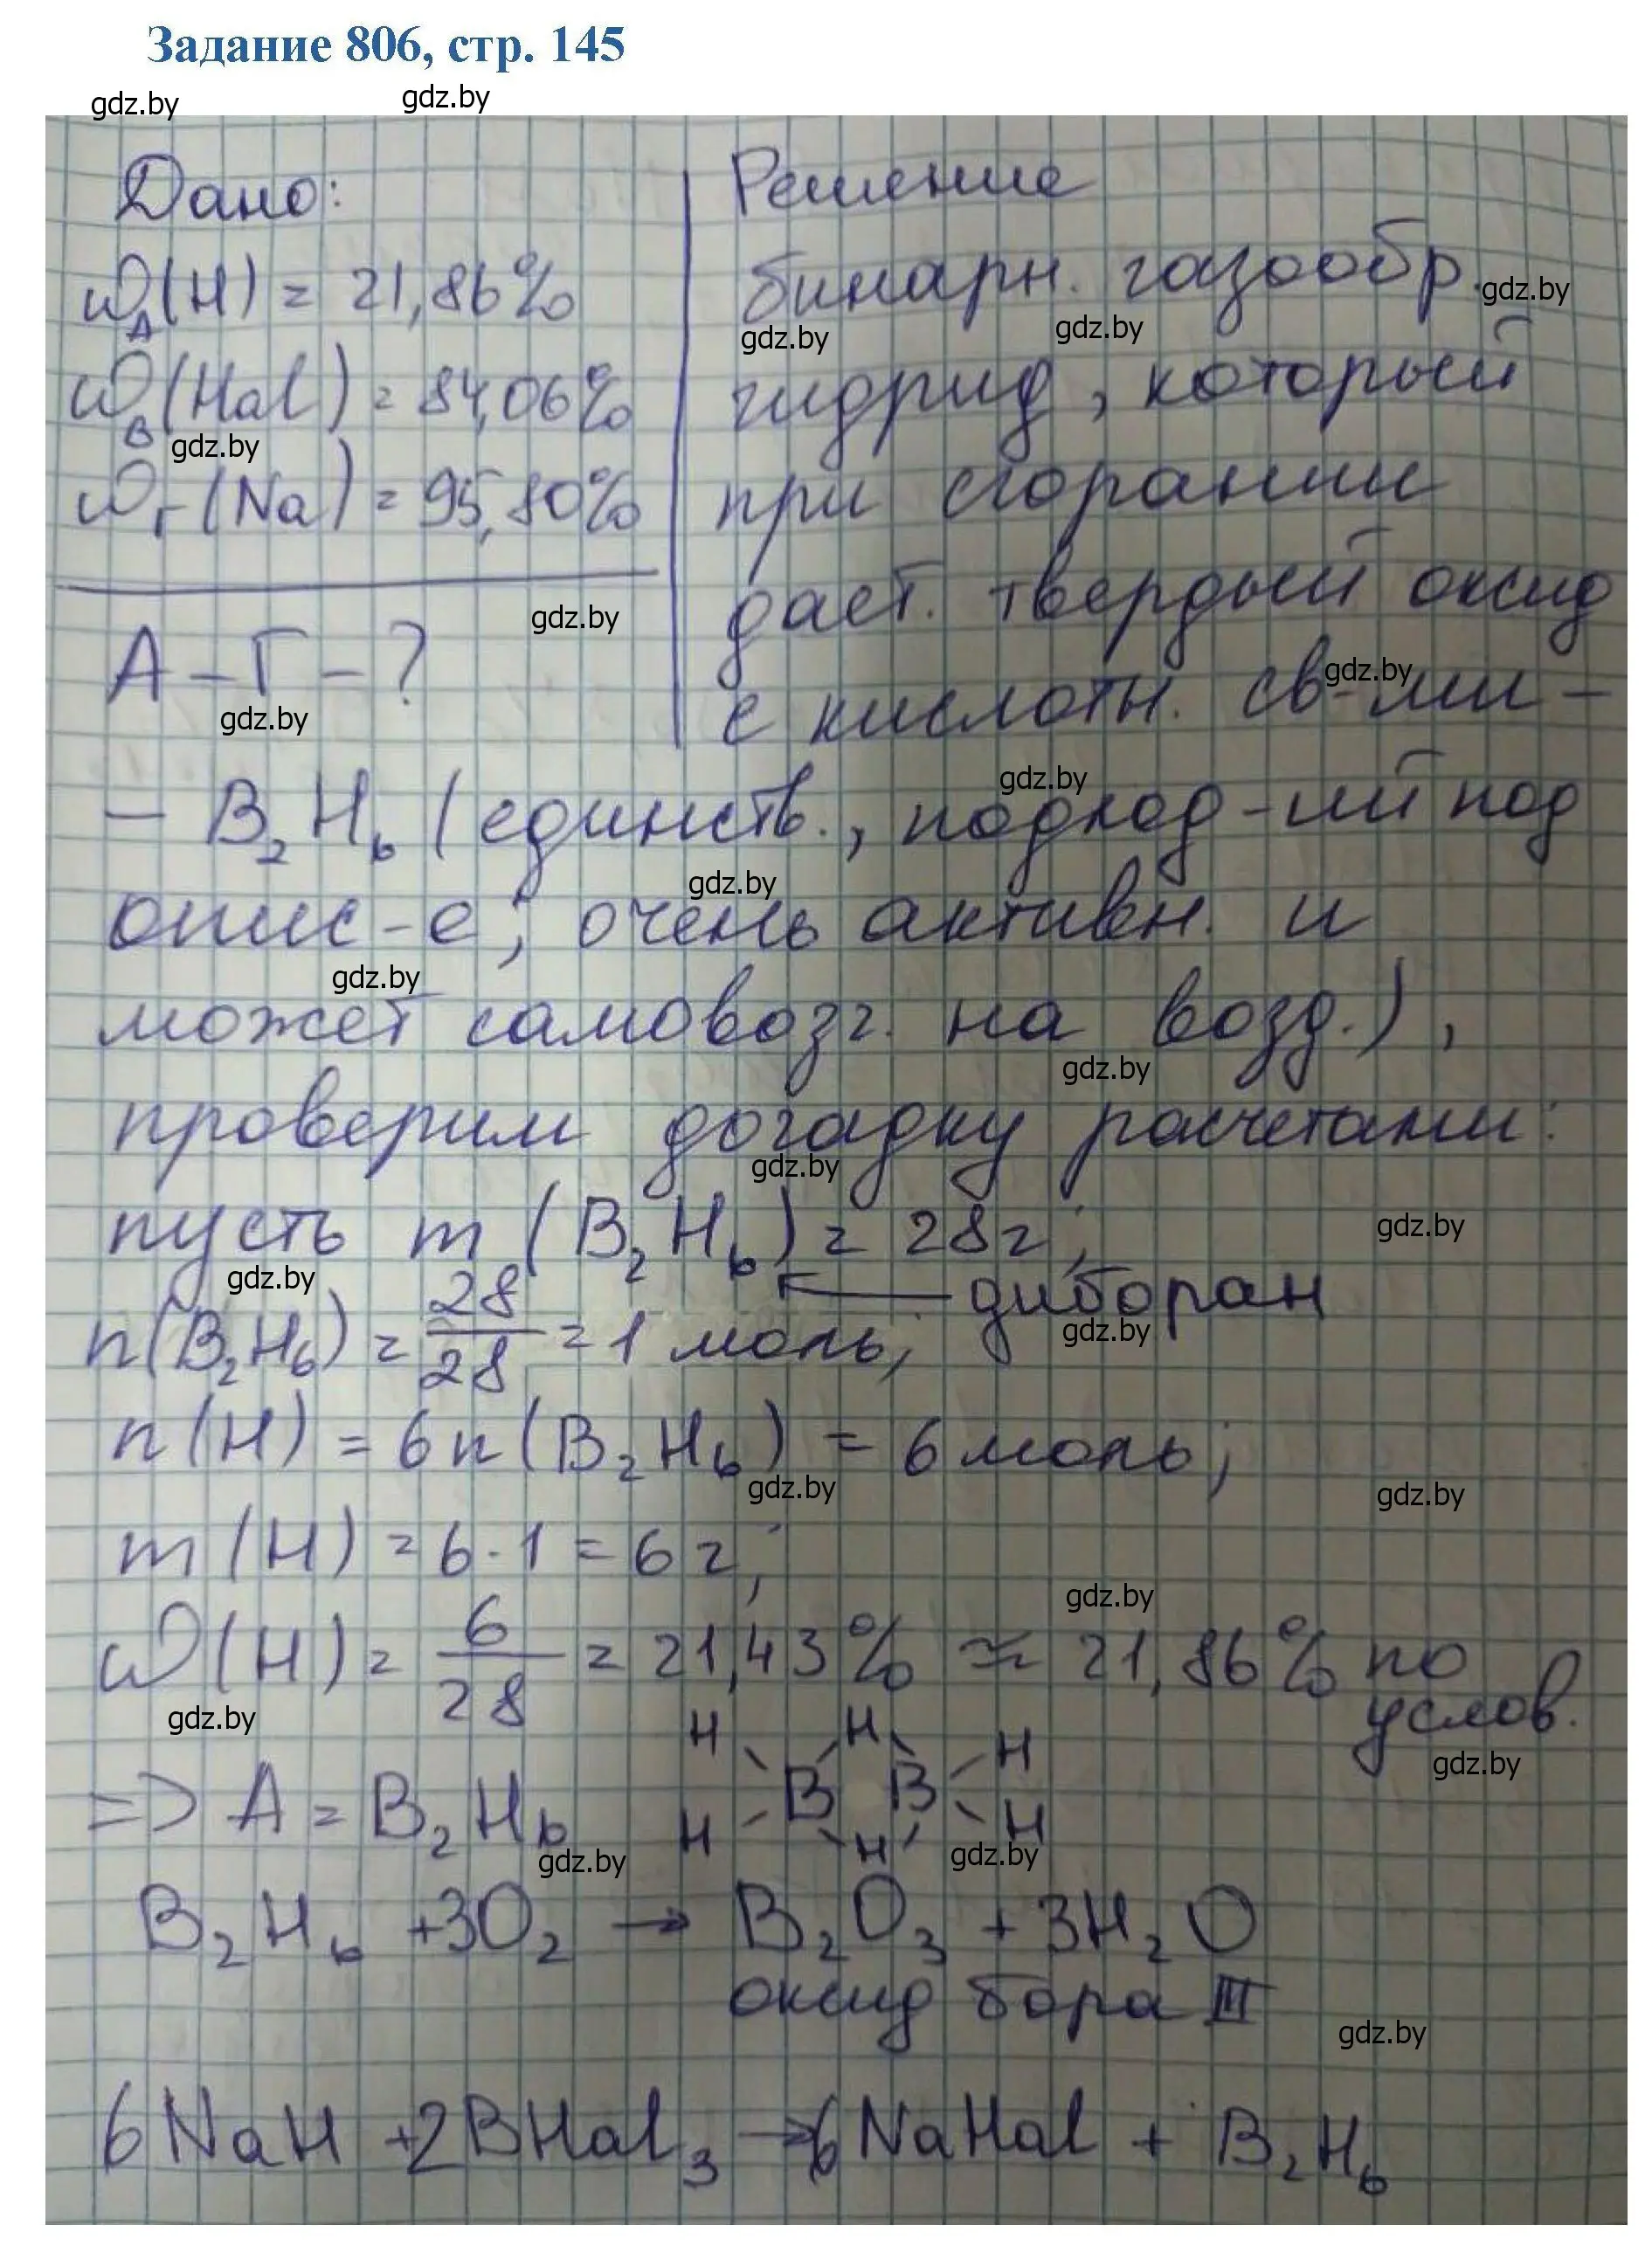 Задание 806, стр. 145
gdz.by gdz.by
Дано:
Решение
ω_A(H) = 21,86%
бинарн. газообр. gdz.by
gdz.by gdz.by
ω_B(Hal) = 84,06%
гидрид, который
gdz.by
ω_Г(Na) = 95,80%
при сгорании
дает. твердый оксид
gdz.by
А – Г – ?
gdz.by
с кислотн. св-ми –
gdz.by
gdz.by
– B₂H₆ (единств., подход-ий под
gdz.by
опис-е; очень активн. и
gdz.by
может самовозг. на возд.),
gdz.by
проверим догадку расчетами:
gdz.by
пусть m (B₂H₆) = 28г;
gdz.by
gdz.by
← диборан
gdz.by
n(B₂H₆) = 28/28 = 1 моль;
n(H) = 6n(B₂H₆) = 6 моль;
gdz.by gdz.by
m(H) = 6·1 = 6 г;
gdz.by
ω(H) = 6/28 = 21,43% ≈ 21,86% по услов.
gdz.by
gdz.by
H H H
=> A = B₂H₆ B B
H H H
gdz.by gdz.by
B₂H₆ +3O₂ → B₂O₃ + 3H₂O
оксид бора III
gdz.by
6NaH +2BHal₃ → 6NaHal + B₂H₆